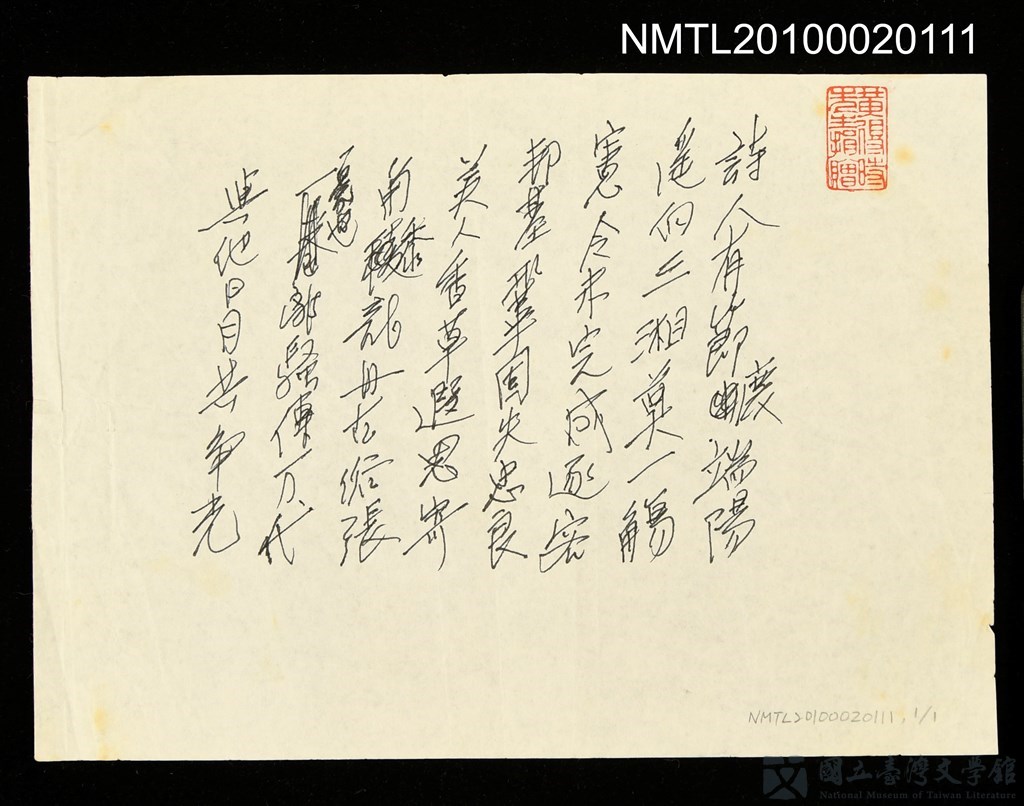 NMTL20100020111
黃得時
先生捐贈
詩人有節慶端陽
遙向三湘奠一觴
憲令未完成逐客
邦基鞏固失忠良
美人香草遐思寄
角黍龍舟古俗張
離騷傳万代
與他日月共爭光
NMTL20100020111, 1/1
國立臺灣文學館
National Museum of Taiwan Literature